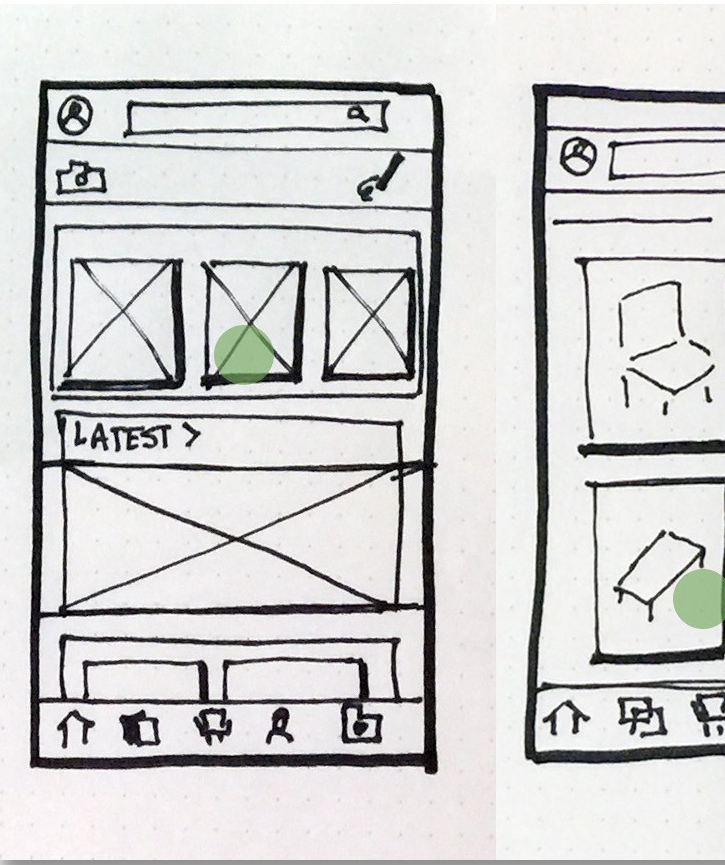 LATEST >